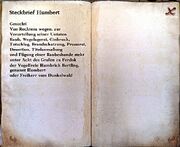 Steckbrief Humbert
Gesucht
Von Rechtens wegen, zur
Verurteilung seiner Untaten
Raub, Wegelagerei, Einbruch,
Totschlag, Brandschatzung, Frauerei,
Desertion, Titelanmaßung
und Fügung einer Räuberbande steht
unter Acht des Grafen zu Ferdok
der Vogelfreie Humbrich Bertling,
genannt Humbert
oder Freiherr vom Dunkelwald